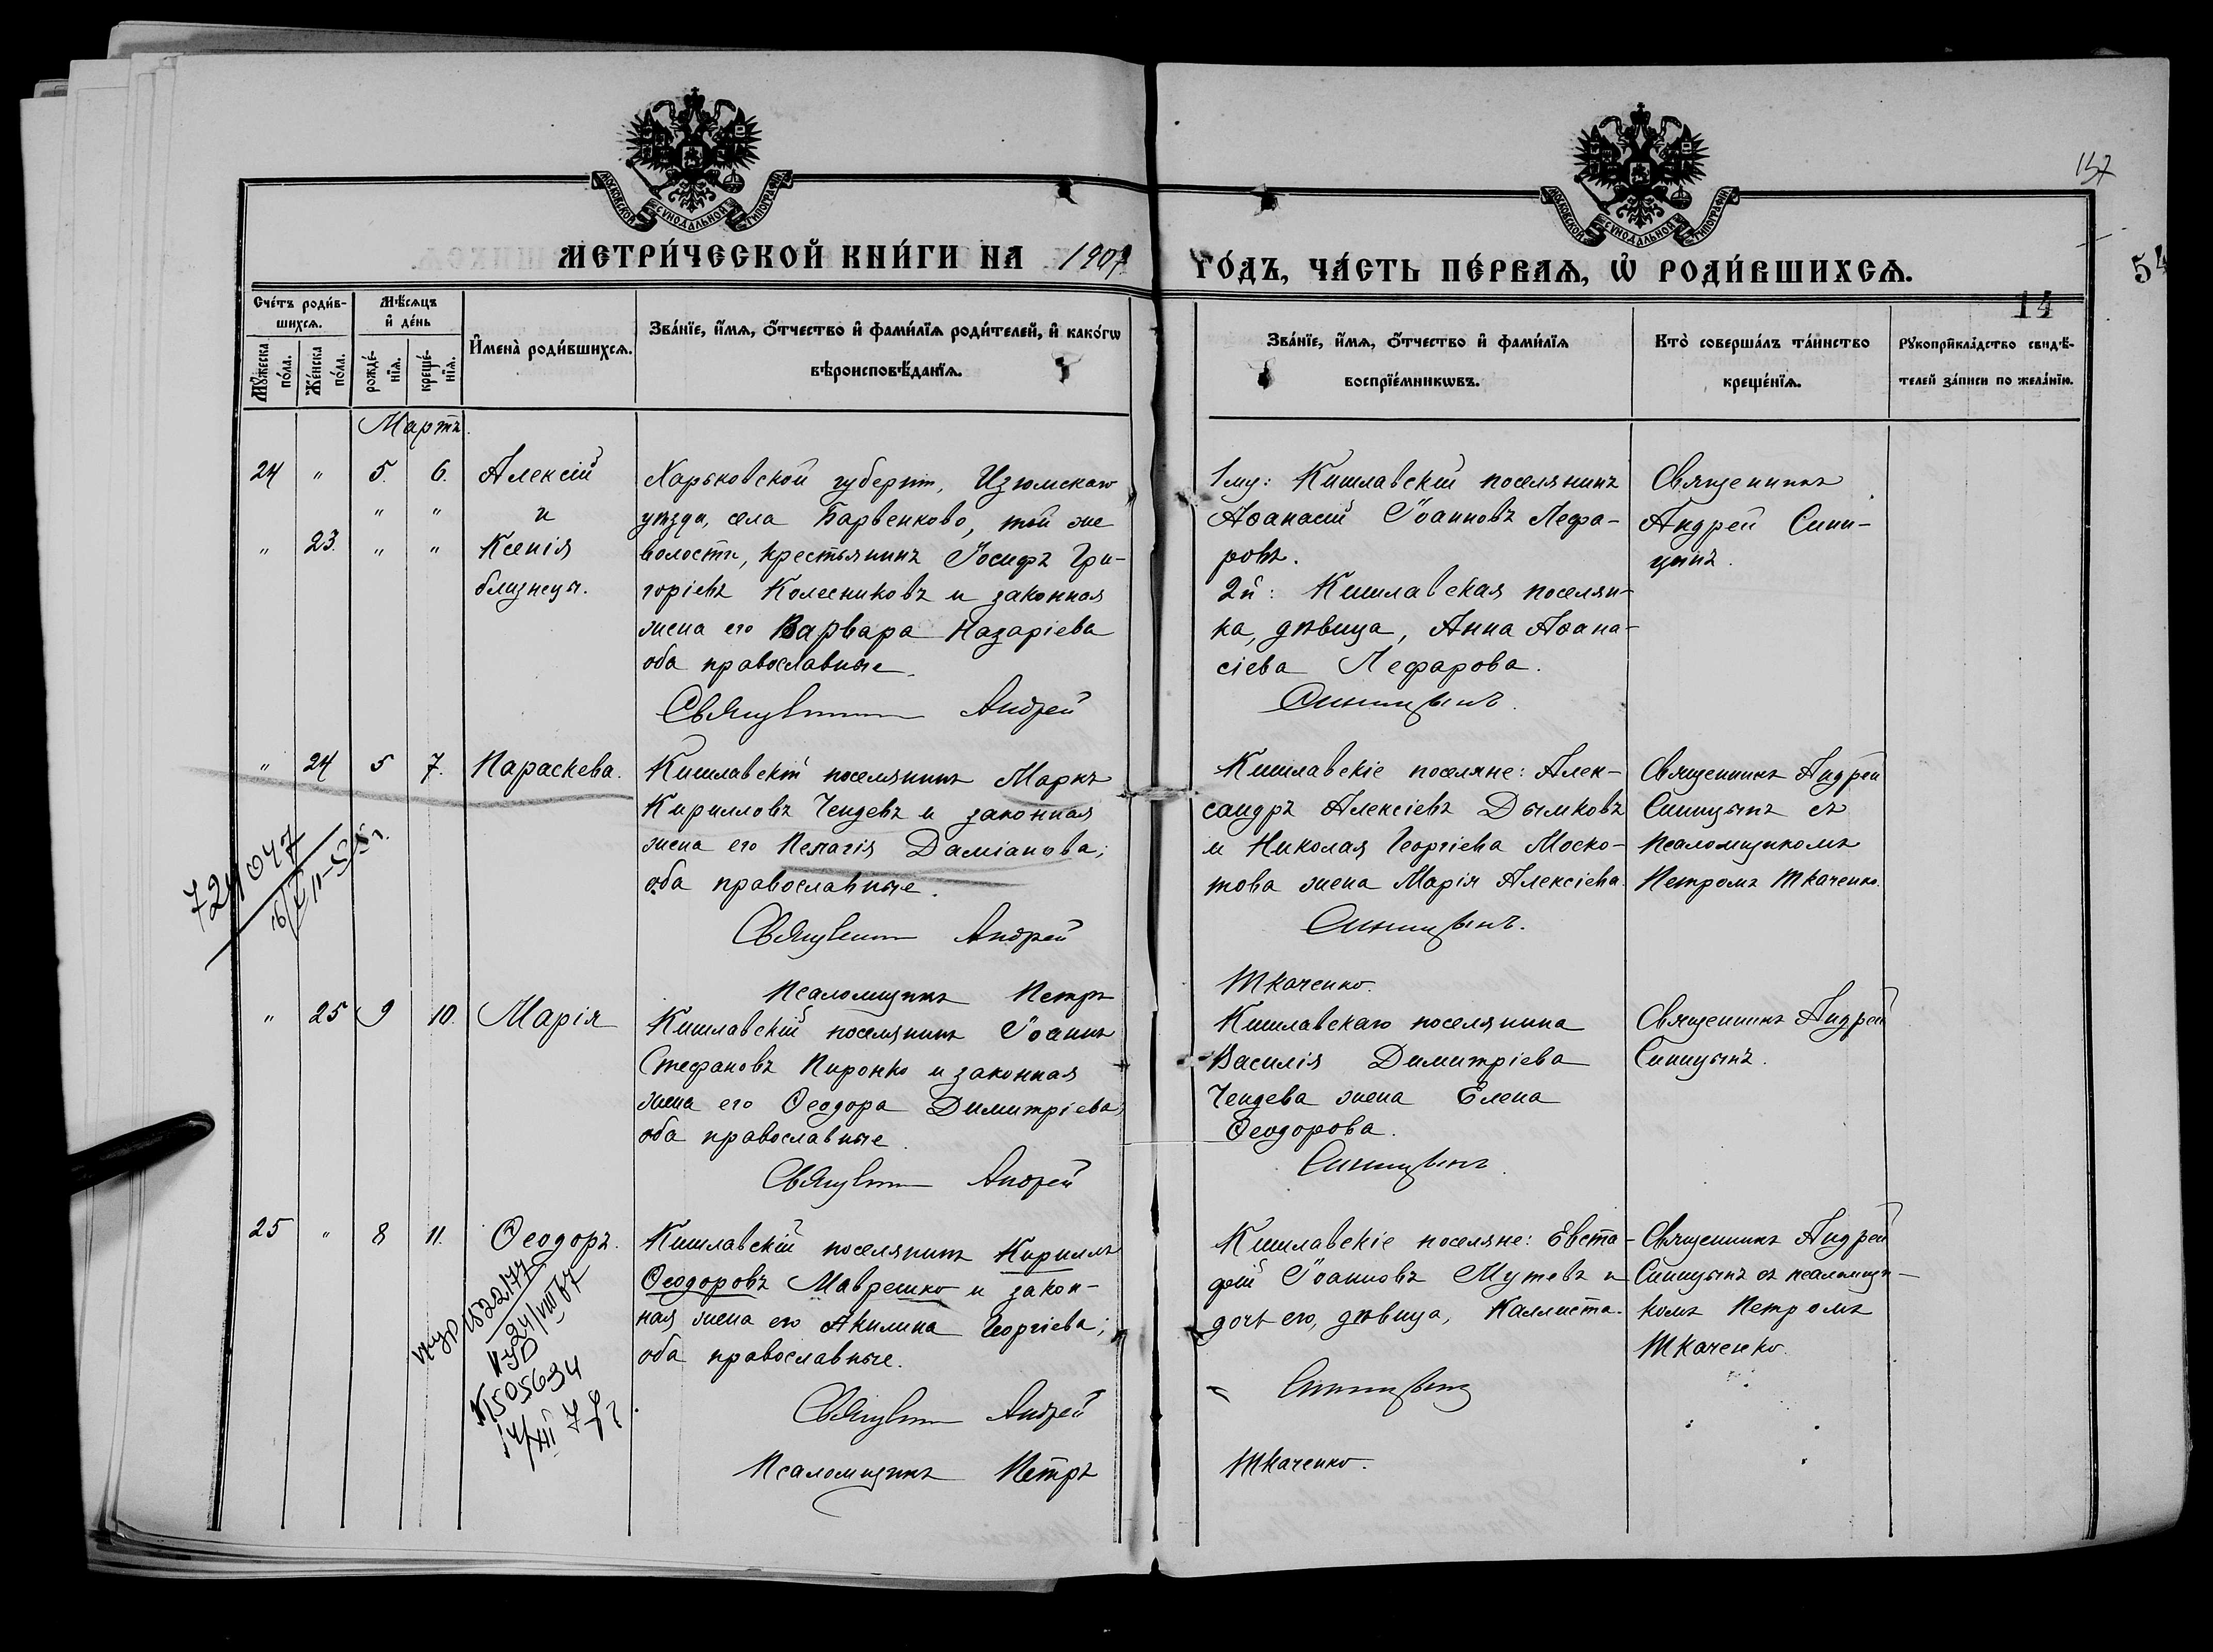 157
54
МОСКОВСКОЙ СѴНОДАЛЬНОЙ ТИПОГРАФІИ
МОСКОВСКОЙ СѴНОДАЛЬНОЙ ТИПОГРАФІИ
МЕТРИ́ЧЕСКОЙ КНИ́ГИ НА 1907
ГО́ДЪ, ЧА́СТЬ ПЕ́РВАѦ, Ѡ҆ РОДИ́ВШИХСѦ.
14
Сче́тъ роди́в-
шихсѧ.
Мѣ́сѧцъ
и҆ де́нь
И҆мена̀ роди́вшихсѧ.
Зва́нїе, и҆́мѧ, ѻ҆́тчество и҆ фами́лїѧ роди́телей, и҆ како́гѡ
вѣроисповѣ́данїѧ.
Мꙋ́жеска
по́ла.
Же́нска
по́ла.
рожде́-
нїѧ.
креще́-
нїѧ.
Зва́нїе, и҆́мѧ, ѻ҆́тчество и҆ фами́лїѧ
воспрїе́мникѡвъ.
Кто̀ соверша́лъ та́инство
креще́нїѧ.
Рꙋкоприкла́дство свидѣ́-
телей за́писи по жела́нїю.
Мартъ.
24 " 5. 6. Алексій
" " и
" 23. " " Ксенія
близнецы.
Харьковской губерніи, Изюмскаго
уѣзда, села Барвенково, той же
волости, крестьянинъ Іосифъ Гри-
горіевъ Колесниковъ и законная
жена его Варвара Назаріева
оба православные.
Священникъ Андрей
1му: Кишлавскій поселянинъ
Аѳанасій Іоанновъ Лефа-
ровъ.
2й: Кишлавская поселян-
ка, дѣвица, Анна Аѳана-
сіева Лефарова.
Синицынъ.
Священникъ
Андрей Сини-
цынъ.
" 24 5 7. Параскева.
Кишлавскій поселянинъ Маркъ
Кирилловъ Чендевъ и законная
жена его Пелагія Даміанова;
оба православные.
Священникъ Андрей
Псаломщикъ Петръ
Кишлавскіе поселяне: Алек-
сандръ Алексіевъ Дымковъ
и Николая Георгіева Моско-
това жена Марія Алексіева.
Синицынъ.
Ткаченко.
Священникъ Андрей
Синицынъ съ
псаломщикомъ
Петромъ Ткаченко.
724047
" 25 9 10. Марія
Кишлавскій поселянинъ Іоаннъ
Стефановъ Пиронко и законная
жена его Ѳеодора Димитріева;
оба православные.
Священникъ Андрей
Кишлавскаго поселянина
Василія Димитріева
Чендева жена Елена
Ѳеодорова.
Синицынъ.
Священникъ Андрей
Синицынъ.
25 " 8 11. Ѳеодоръ.
Кишлавскій поселянинъ Кириллъ
Ѳеодоровъ Маврешко и закон-
ная жена его Акилина Георгіева;
оба православные.
Священникъ Андрей
Псаломщикъ Петръ
Кишлавскіе поселяне: Евста-
фій Іоанновъ Мутевъ и
дочь его, дѣвица, Каллиста.
Синицынъ
Ткаченко.
Священникъ Андрей
Синицынъ съ псаломщи-
комъ Петромъ
Ткаченко.
1522177
24/VIII 67
1505634
14/XII 78г